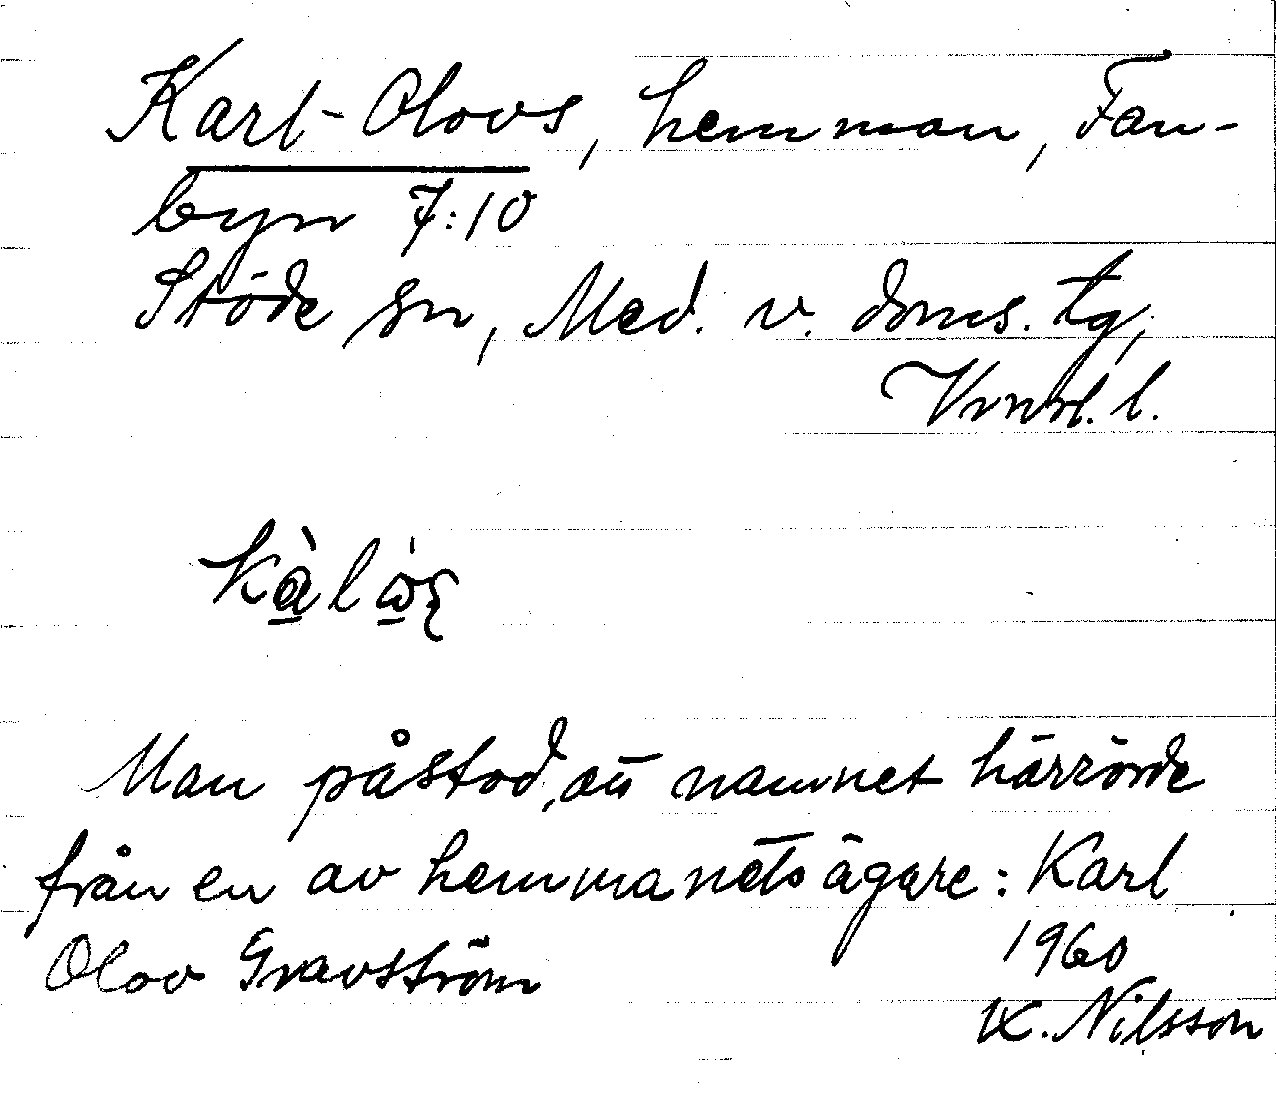 Karl-Olovs, hemman, Fan-
byn 7:10
Stöde sn, Med. v. doms. tg,
Vrnrl. l.
Man påstod, att namnet härrörde
från en av hemmanets ägare: Karl
Olov Gravström
1960
K. Nilsson